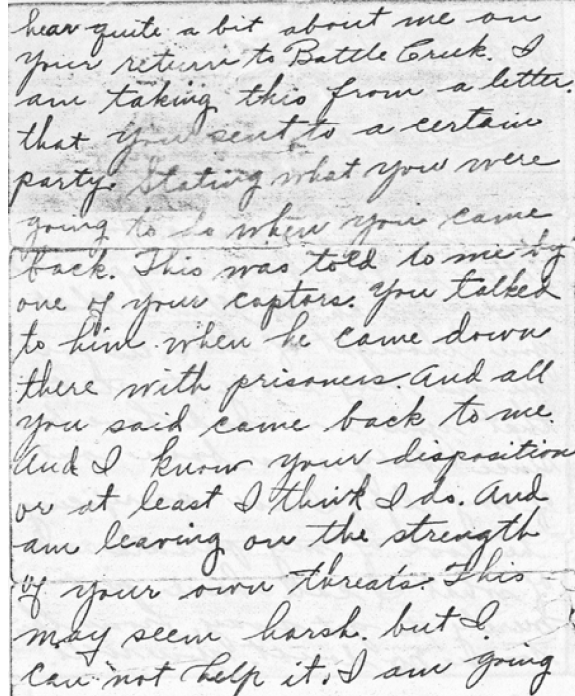 hear quite a bit about me on
your return to Battle Creek. I
am taking this from a letter.
that you sent to a certain
party. Stating what you were
going to do when you came
back. This was told to me by
one of your captors. You talked
to him when he came down
there with prisoners. And all
you said came back to me.
And I know your disposition
or at least I think I do. And
am leaving on the strength
of your own threats. This
may seem harsh. but I.
can not help it. I am going